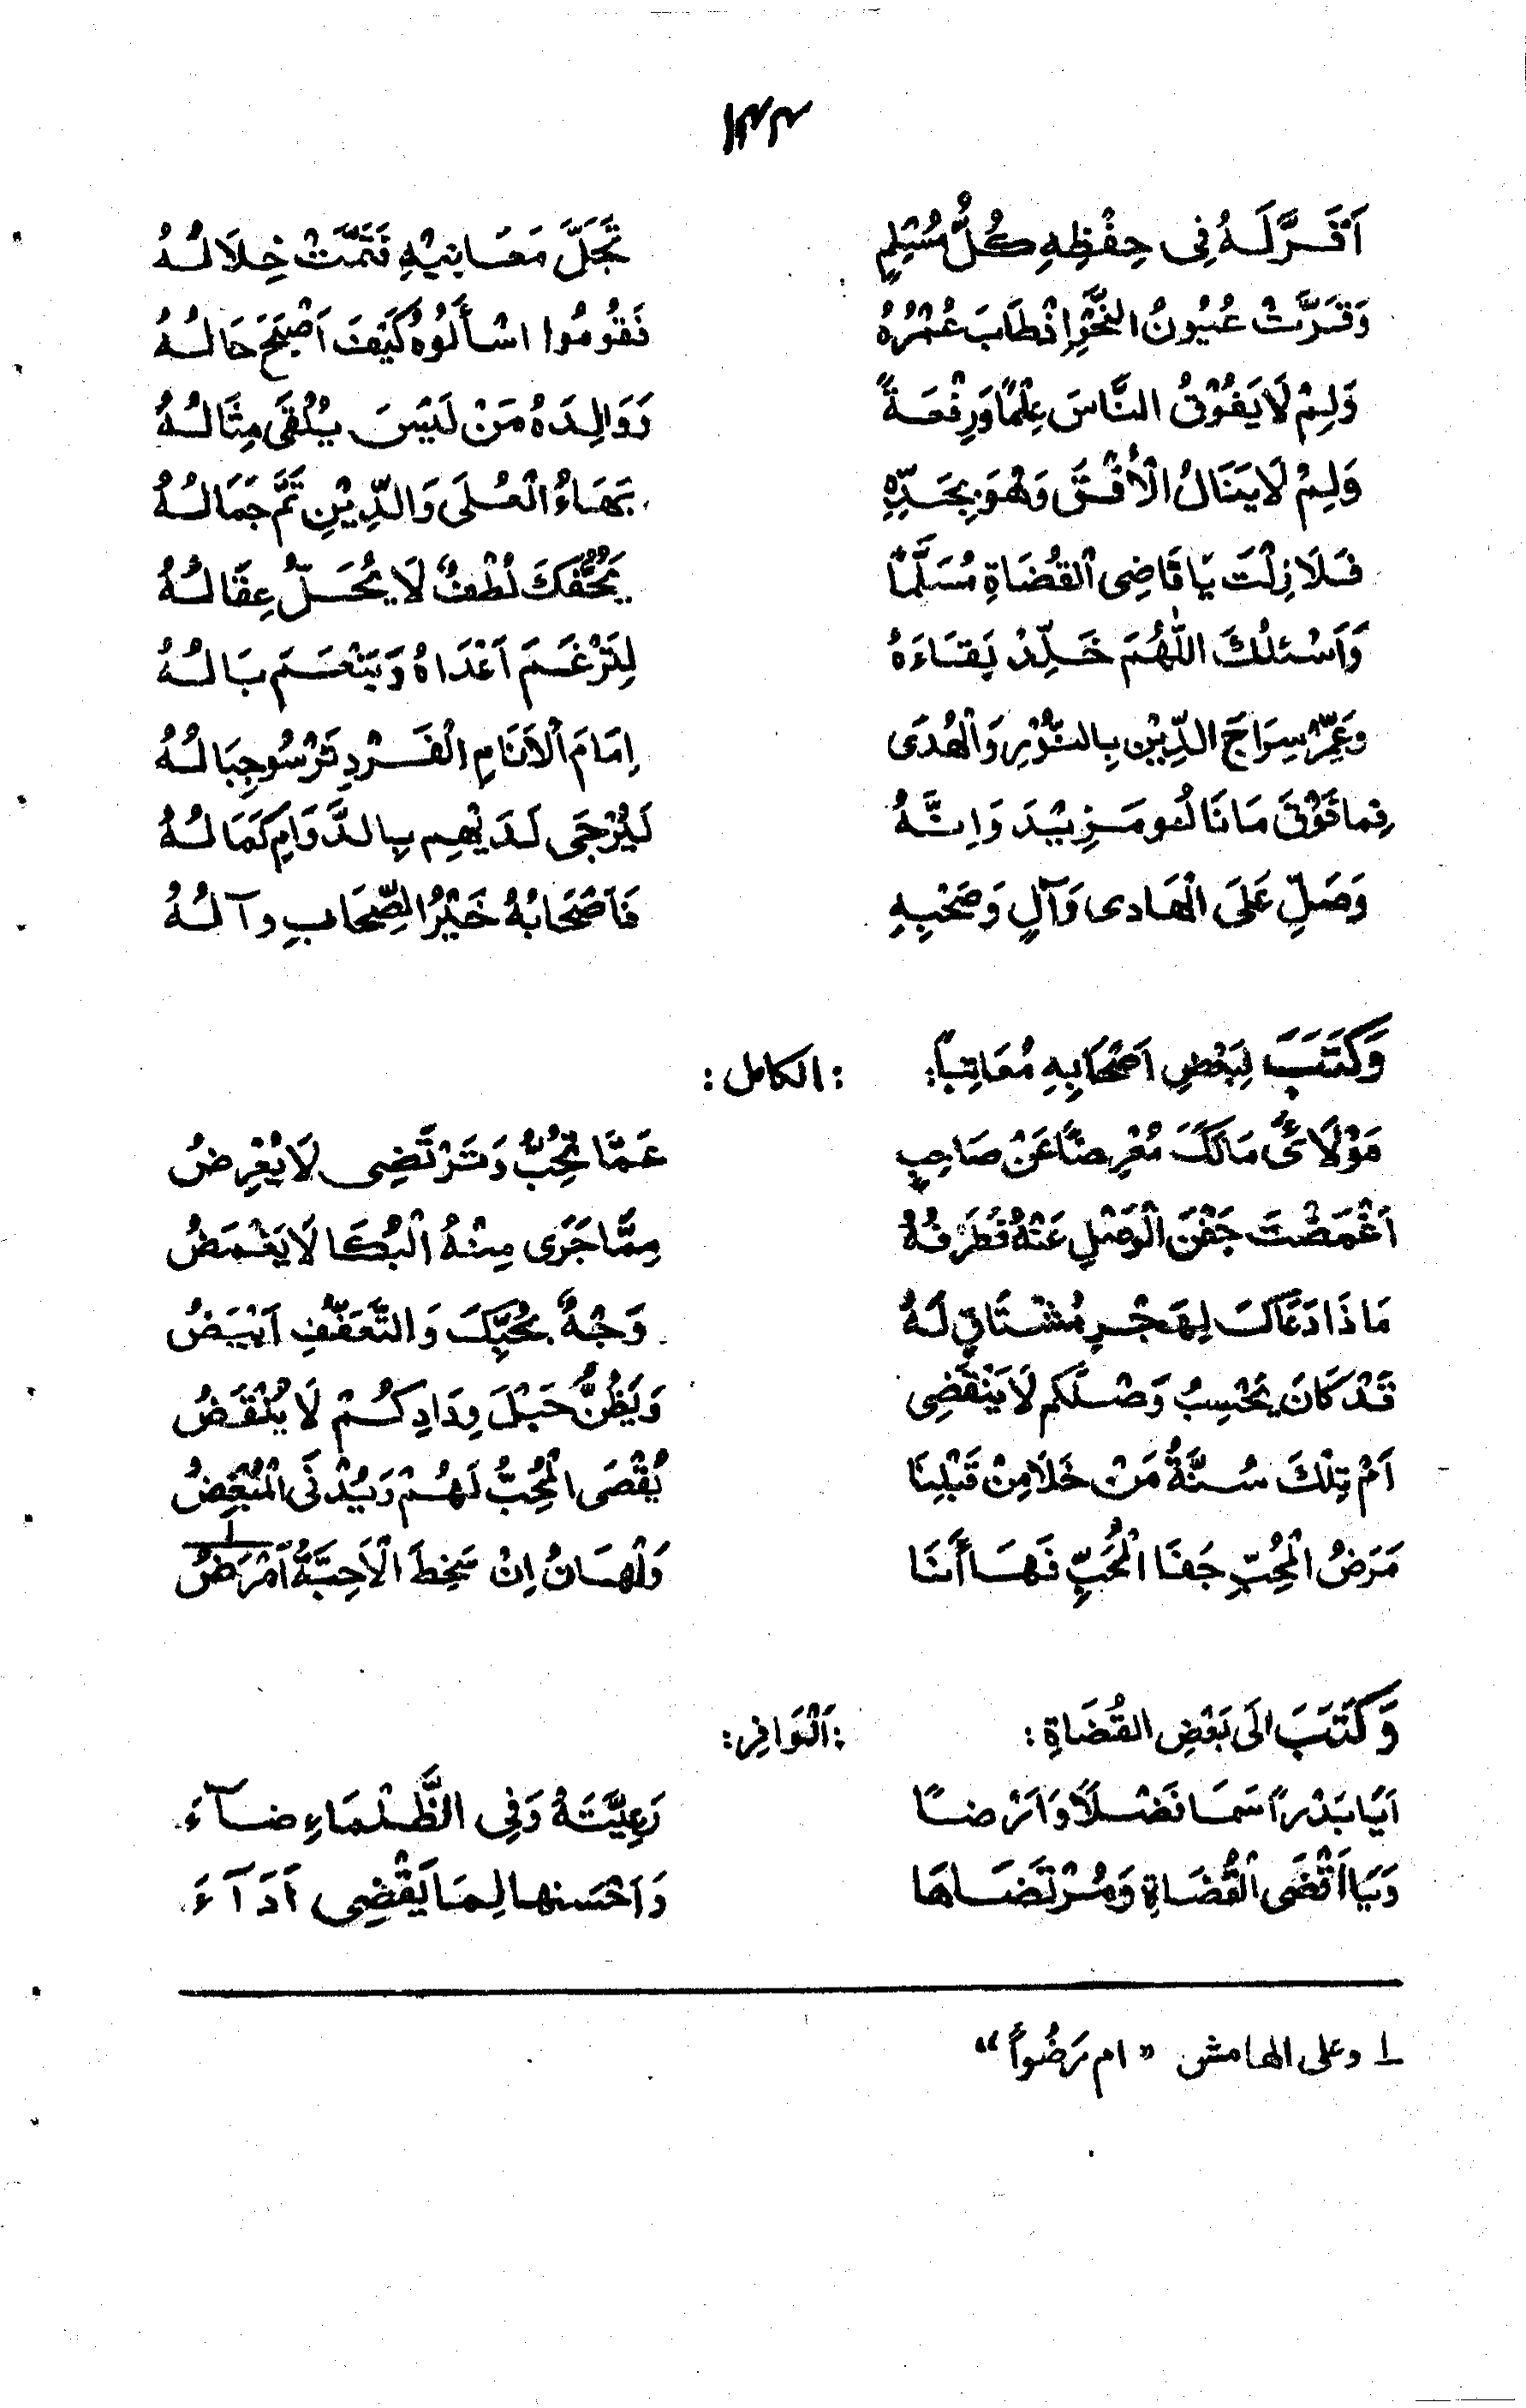 اَقَرَّ لَهُ فِى حِفْظِهِ كُلُّ مُسْلِمٍ تَجَلَّ مَعَانِيْهِ فَتَمَّتْ خِلَالُهُ
وَقَرَّتْ عُيُونُ النَّحْوِ اِذْ طَابَ عُمْرُهُ فَقُومُوا اسْأَلُوْهُ كَيْفَ اَصْبَحَ حَالُهُ
وَلِمْ لَا يَفُوْقُ النَّاسَ عِلْمًا وَرِفْعَةً وَوَالِدَهُ مَنْ لَيْسَ يُلْقَى مِثَالُهُ
وَلِمْ لَا يَنَالُ الْأُفْقَ وَهْوَ بِجَدِّهِ بَهَاءُ الْعُلَى وَالدِّيْنِ تَمَّ جَمَالُهُ
فَلَا زِلْتَ يَا قَاضِى الْقُضَاةِ مُسَلَّمًا يَحُفُّكَ لُطْفٌ لَا يُحَلُّ عِقَالُهُ
وَاَسْئَلُكَ اللّٰهُمَ خَلِّدْ بَقَاءَهُ لِتَرْغَمَ اَعْدَاهُ وَيَنْعَمَ بَالُهُ
وَعَمِّرْ سِرَاجَ الدِّيْنِ بِالنُّوْرِ وَالْهُدَى اِمَامَ الْاَنَامِ الْفَرْدِ تَرْسُو جِبَالُهُ
فما فَوْقَ مَا نَالُو مَزِيْدَ وَاِنَّهُ لَيُرْجَى لَدَيْهِم بِالدَّوَامِ كَمَالُهُ
وَصَلِّ عَلَى الْهَادى وَآلٍ وَصَحْبِهِ فَاَصْحَابُهُ خَيْرُ الصِّحَابِ وآلُهُ
وَكَتَبَ لِبَعْضِ اَصْحَابِهِ مُعَاتِبًا: :الكامل:
مَوْلَاىَ مَالَكَ مُعْرِضًا عَنْ صَاحِبٍ عَمَّا تُحِبُّ وَتَرْتَضِى لَا يُعْرِضُ
اَغْمَضْتَ جَفْنَ الْوَصْلِ عَنْهُ فَطَرْفُهُ مِمَّا جَرَى مِنْهُ الْبُكَا لَا يَغْمَضُ
مَا ذَا دَعَاكَ لِهَجْرِ مُشْتَاقٍ لَهُ وَجْهٌ بِحُبِّكَ وَالتَّعَفُّفِ اَبْيَضُ
قَدْ كَانَ يَحْسِبُ وَصْلَكم لَا يَنْقَضِى وَيَظُنُّ حَبْلَ وِدَادِكُمْ لَا يُنْقَضُ
اَمْ تِلْكَ سُنَّةُ مَنْ خَلَا مِنْ قَبْلِنَا يُقْصَى الْمُحِبُّ لَهُمْ وَيُدْنَى الْمُبْغِضُ
مَرَضُ الْمُحِبِّ جَفَا الْمُحَبِّ فَهَا أَنَا وَلْهَانُ اِنْ سَخِطَ الْاَحِبَّةُ اَمْرَضُ ١
وَكَتَبَ اِلَى بَعْضِ القُضَاةِ: :اَلْوَافِر:
اَيَا بَدْرًا سَمَا فَضْلًا وَاَرْضا رَعِيَّتَهُ وَفِى الظَّلْمَاءِ ضآءَ
وَيَا اَقْضَى الْقُضَاةِ وَمُرْتَضَاهَا وَاَحْسَنها لِمَا يَقْضِى اَدَآءَ
١ وعلى الهامش "ام رَضُواْ"